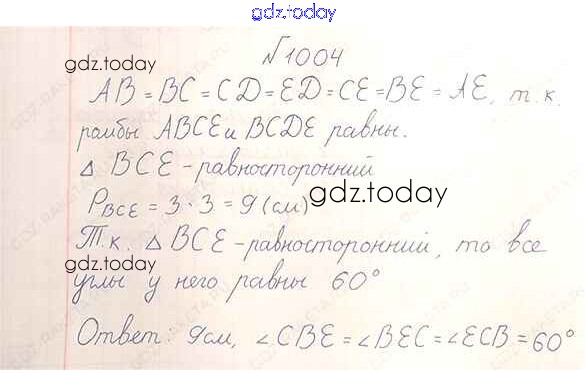 gdz.today
№1004
gdz.today
AB = BC = CD = ED = CE = BE = AE, т.к.
ромбы ABCE и BCDE равны.
△ BCE - равносторонний
P_BCE = 3 · 3 = 9 (см)
gdz.today
Т.к. △ BCE - равносторонний, то все
gdz.today
углы у него равны 60°
Ответ: 9см, ∠CBE = ∠BEC = ∠ECB = 60°